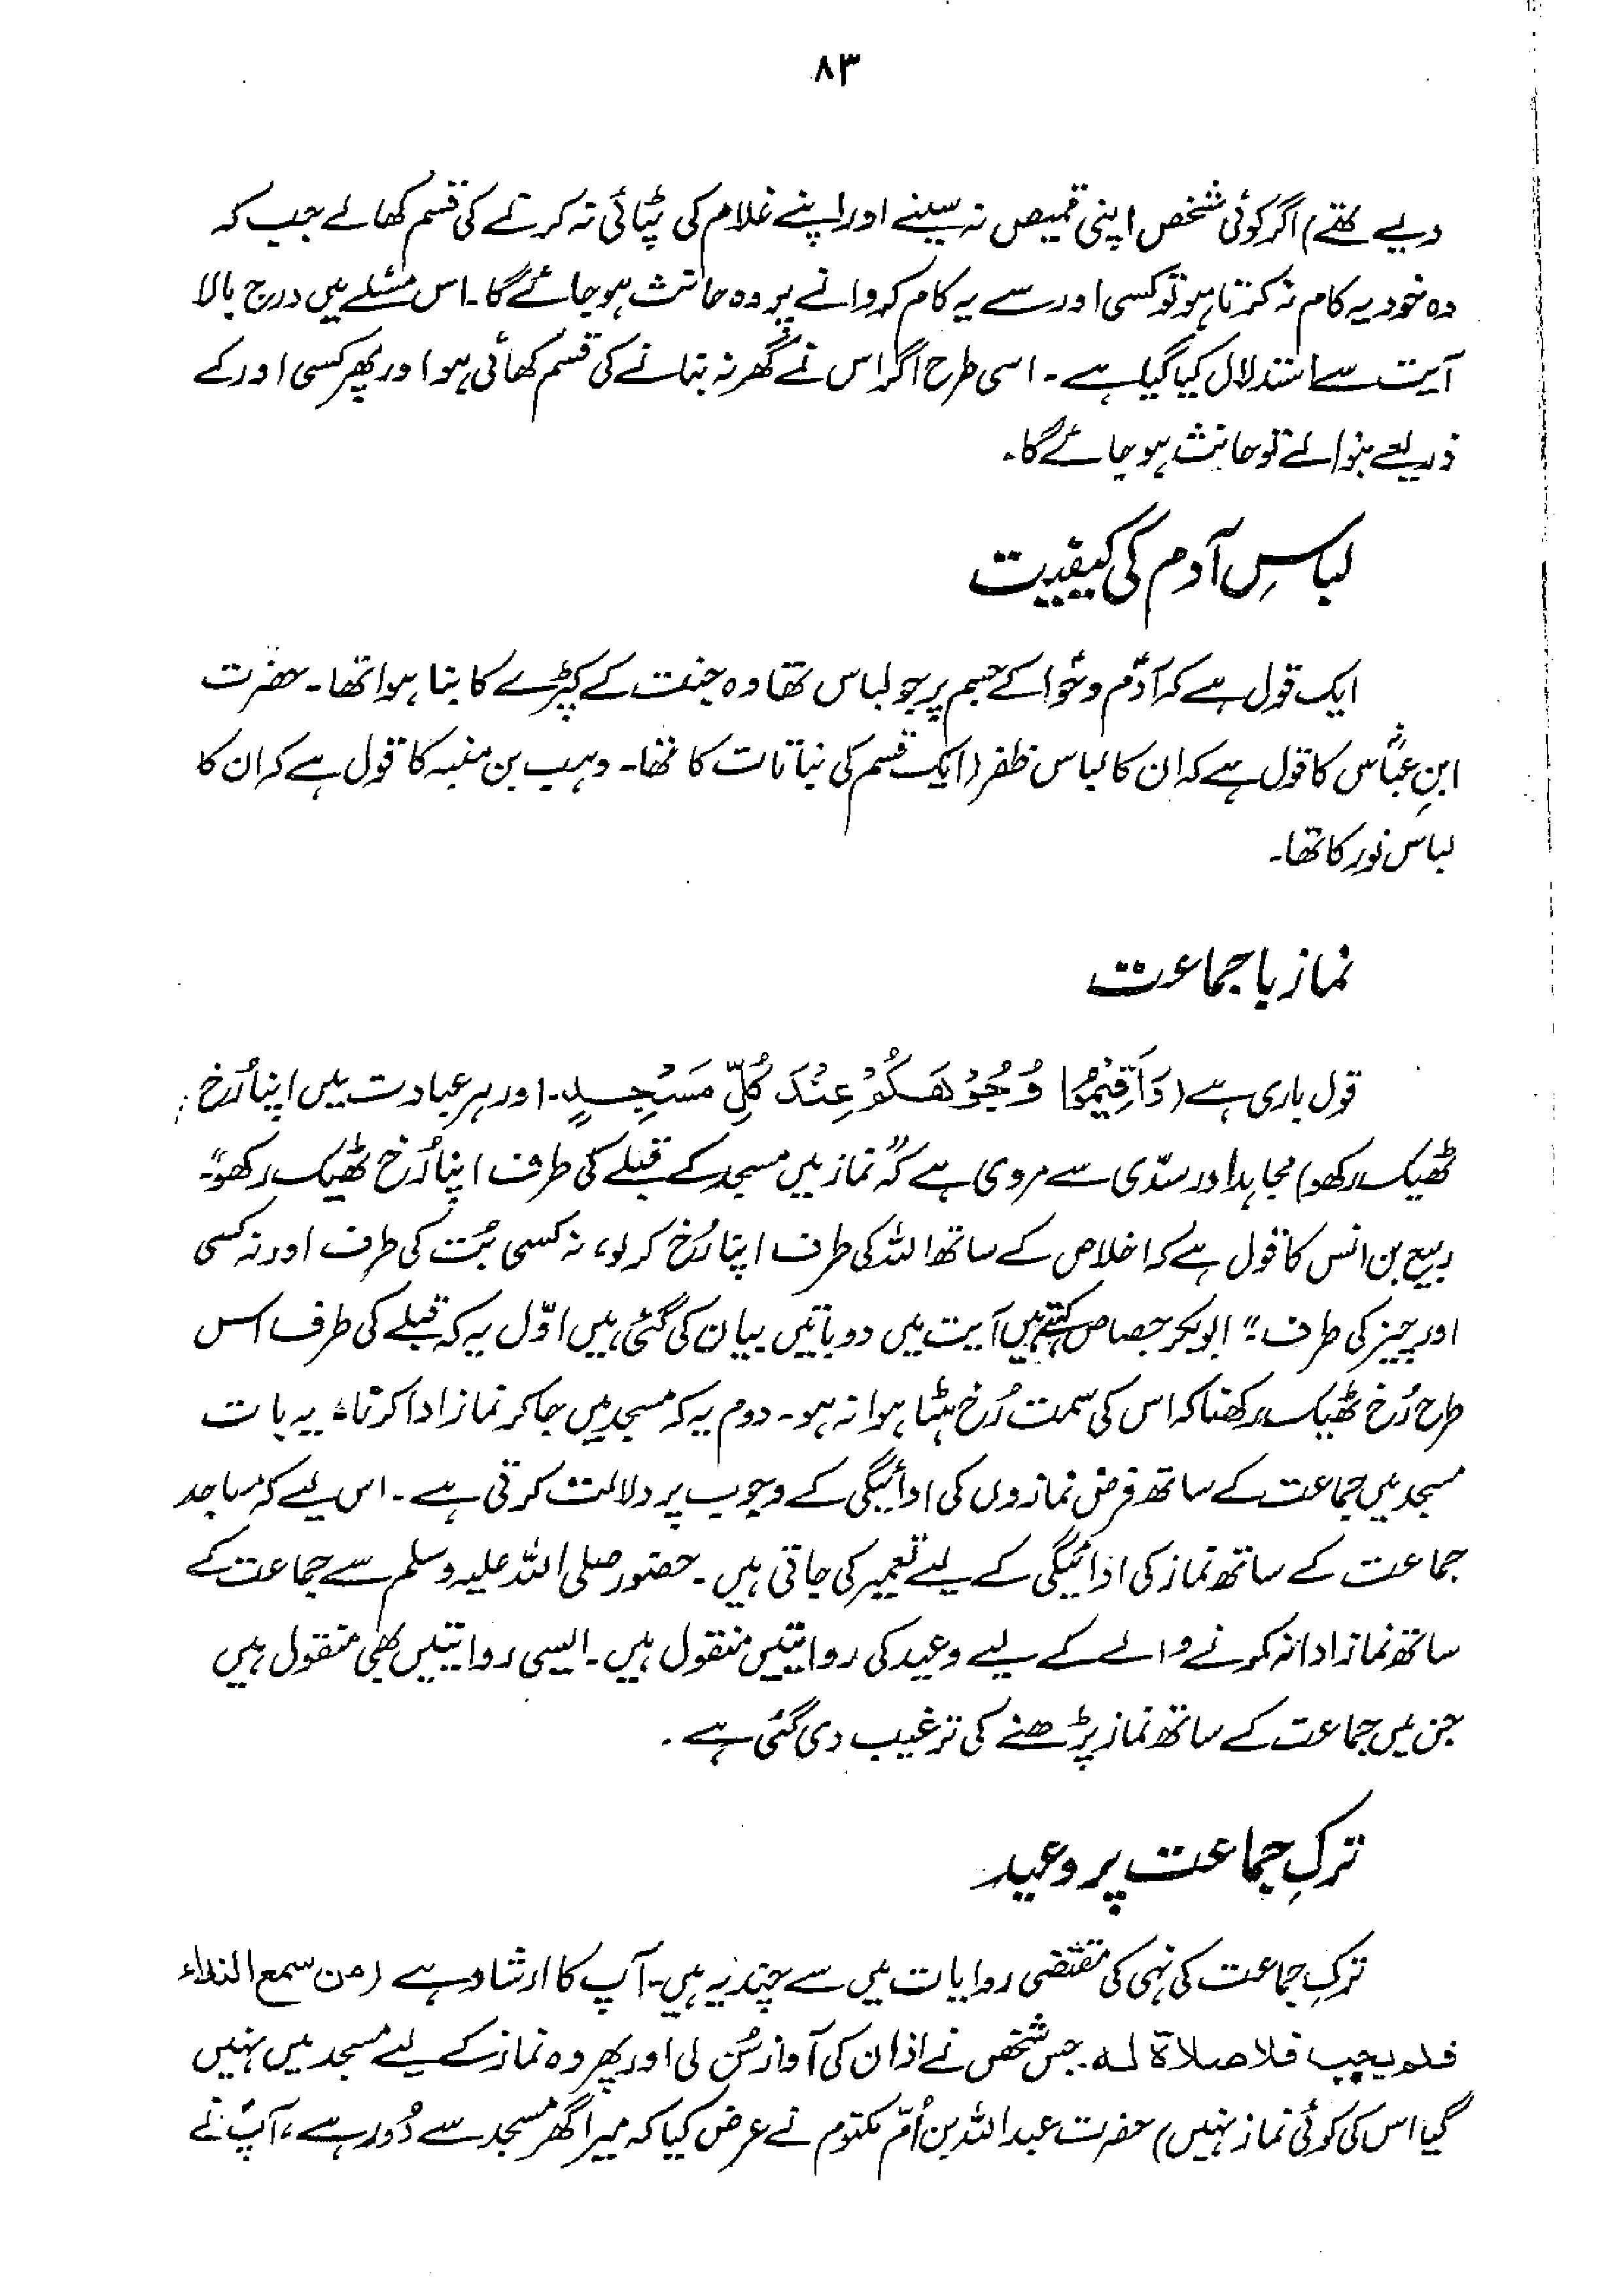 ۸۳
دیے تھے) اگر کوئی شخص اپنی قمیص نہ سینے اور اپنے غلام کی پٹائی نہ کرنے کی قسم کھالے جب کہ
وہ خود یہ کام نہ کرتا ہو تو کسی اور سے یہ کام کروانے پر وہ حانث ہو جائے گا۔ اس مسئلے میں درج بالا
آیت سے استدلال کیا گیا ہے۔ اسی طرح اگر اس نے گھر نہ بنانے کی قسم کھائی ہو اور پھر کسی اور کے
ذریعے بنوالے تو حانث ہو جائے گا۔
لباسِ آدم کی کیفیت
ایک قول ہے کہ آدمؑ و حوّا کے جسم پر جو لباس تھا وہ جنت کے کپڑے کا بنا ہوا تھا۔ حضرت
ابنِ عباسؓ کا قول ہے کہ ان کا لباس ظفر (ایک قسم کی نباتات کا تھا۔ وہب بن منبہ کا قول ہے کہ ان کا
لباس نور کا تھا۔
نماز باجماعت
قول باری ہے (وَاَقِيْمُوْا وُجُوْهَكُمْ عِنْدَ كُلِّ مَسْجِدٍ۔ اور ہر عبادت میں اپنا رُخ
ٹھیک رکھو) مجاہد اور سدّی سے مروی ہے کہ "نماز میں مسجد کے قبلے کی طرف اپنا رُخ ٹھیک رکھو"۔
ربیع بن انس کا قول ہے کہ اخلاص کے ساتھ اللہ کی طرف اپنا رُخ کر لو، نہ کسی بُت کی طرف اور نہ کسی
اور چیز کی طرف"۔ ابوبکر جصاص کہتے ہیں آیت میں دو باتیں بیان کی گئی ہیں اوّل یہ کہ قبلے کی طرف اس
طرح رُخ ٹھیک رکھنا کہ اس کی سمت رُخ ہٹا ہوا نہ ہو۔ دوم یہ کہ مسجد میں جا کر نماز ادا کرنا۔ یہ بات
مسجد میں جماعت کے ساتھ فرض نمازوں کی ادائیگی کے وجوب پر دلالت کرتی ہے۔ اس لیے کہ مساجد
جماعت کے ساتھ نماز کی ادائیگی کے لیے تعمیر کی جاتی ہیں۔ حضور صلی اللہ علیہ وسلم سے جماعت کے
ساتھ نماز ادا نہ کرنے والے کے لیے وعید کی روایتیں منقول ہیں۔ ایسی روایتیں بھی منقول ہیں
جن میں جماعت کے ساتھ نماز پڑھنے کی ترغیب دی گئی ہے۔
ترکِ جماعت پر وعید
ترکِ جماعت کی نہی کی مقتضی روایات میں سے چند یہ ہیں۔ آپ کا ارشاد ہے (من سمع النداء
فلم یجب فلا صلاۃ لہ۔ جس شخص نے اذان کی آواز سُن لی اور پھر وہ نماز کے لیے مسجد میں نہیں
گیا اس کی کوئی نماز نہیں) حضرت عبداللہ بن اُمّ مکتوم نے عرض کیا کہ میرا گھر مسجد سے دُور ہے، آپؐ نے